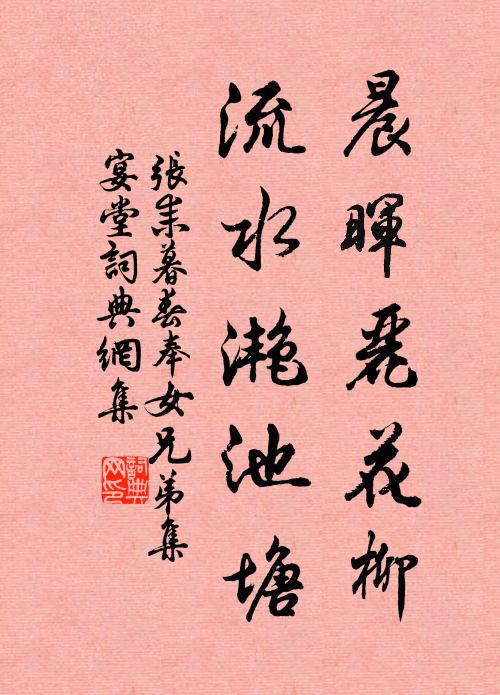 晨暉麗花柳
流水灧池塘
張耒暮春奉女兄弟集
宴堂詞典網集
詞典
网印